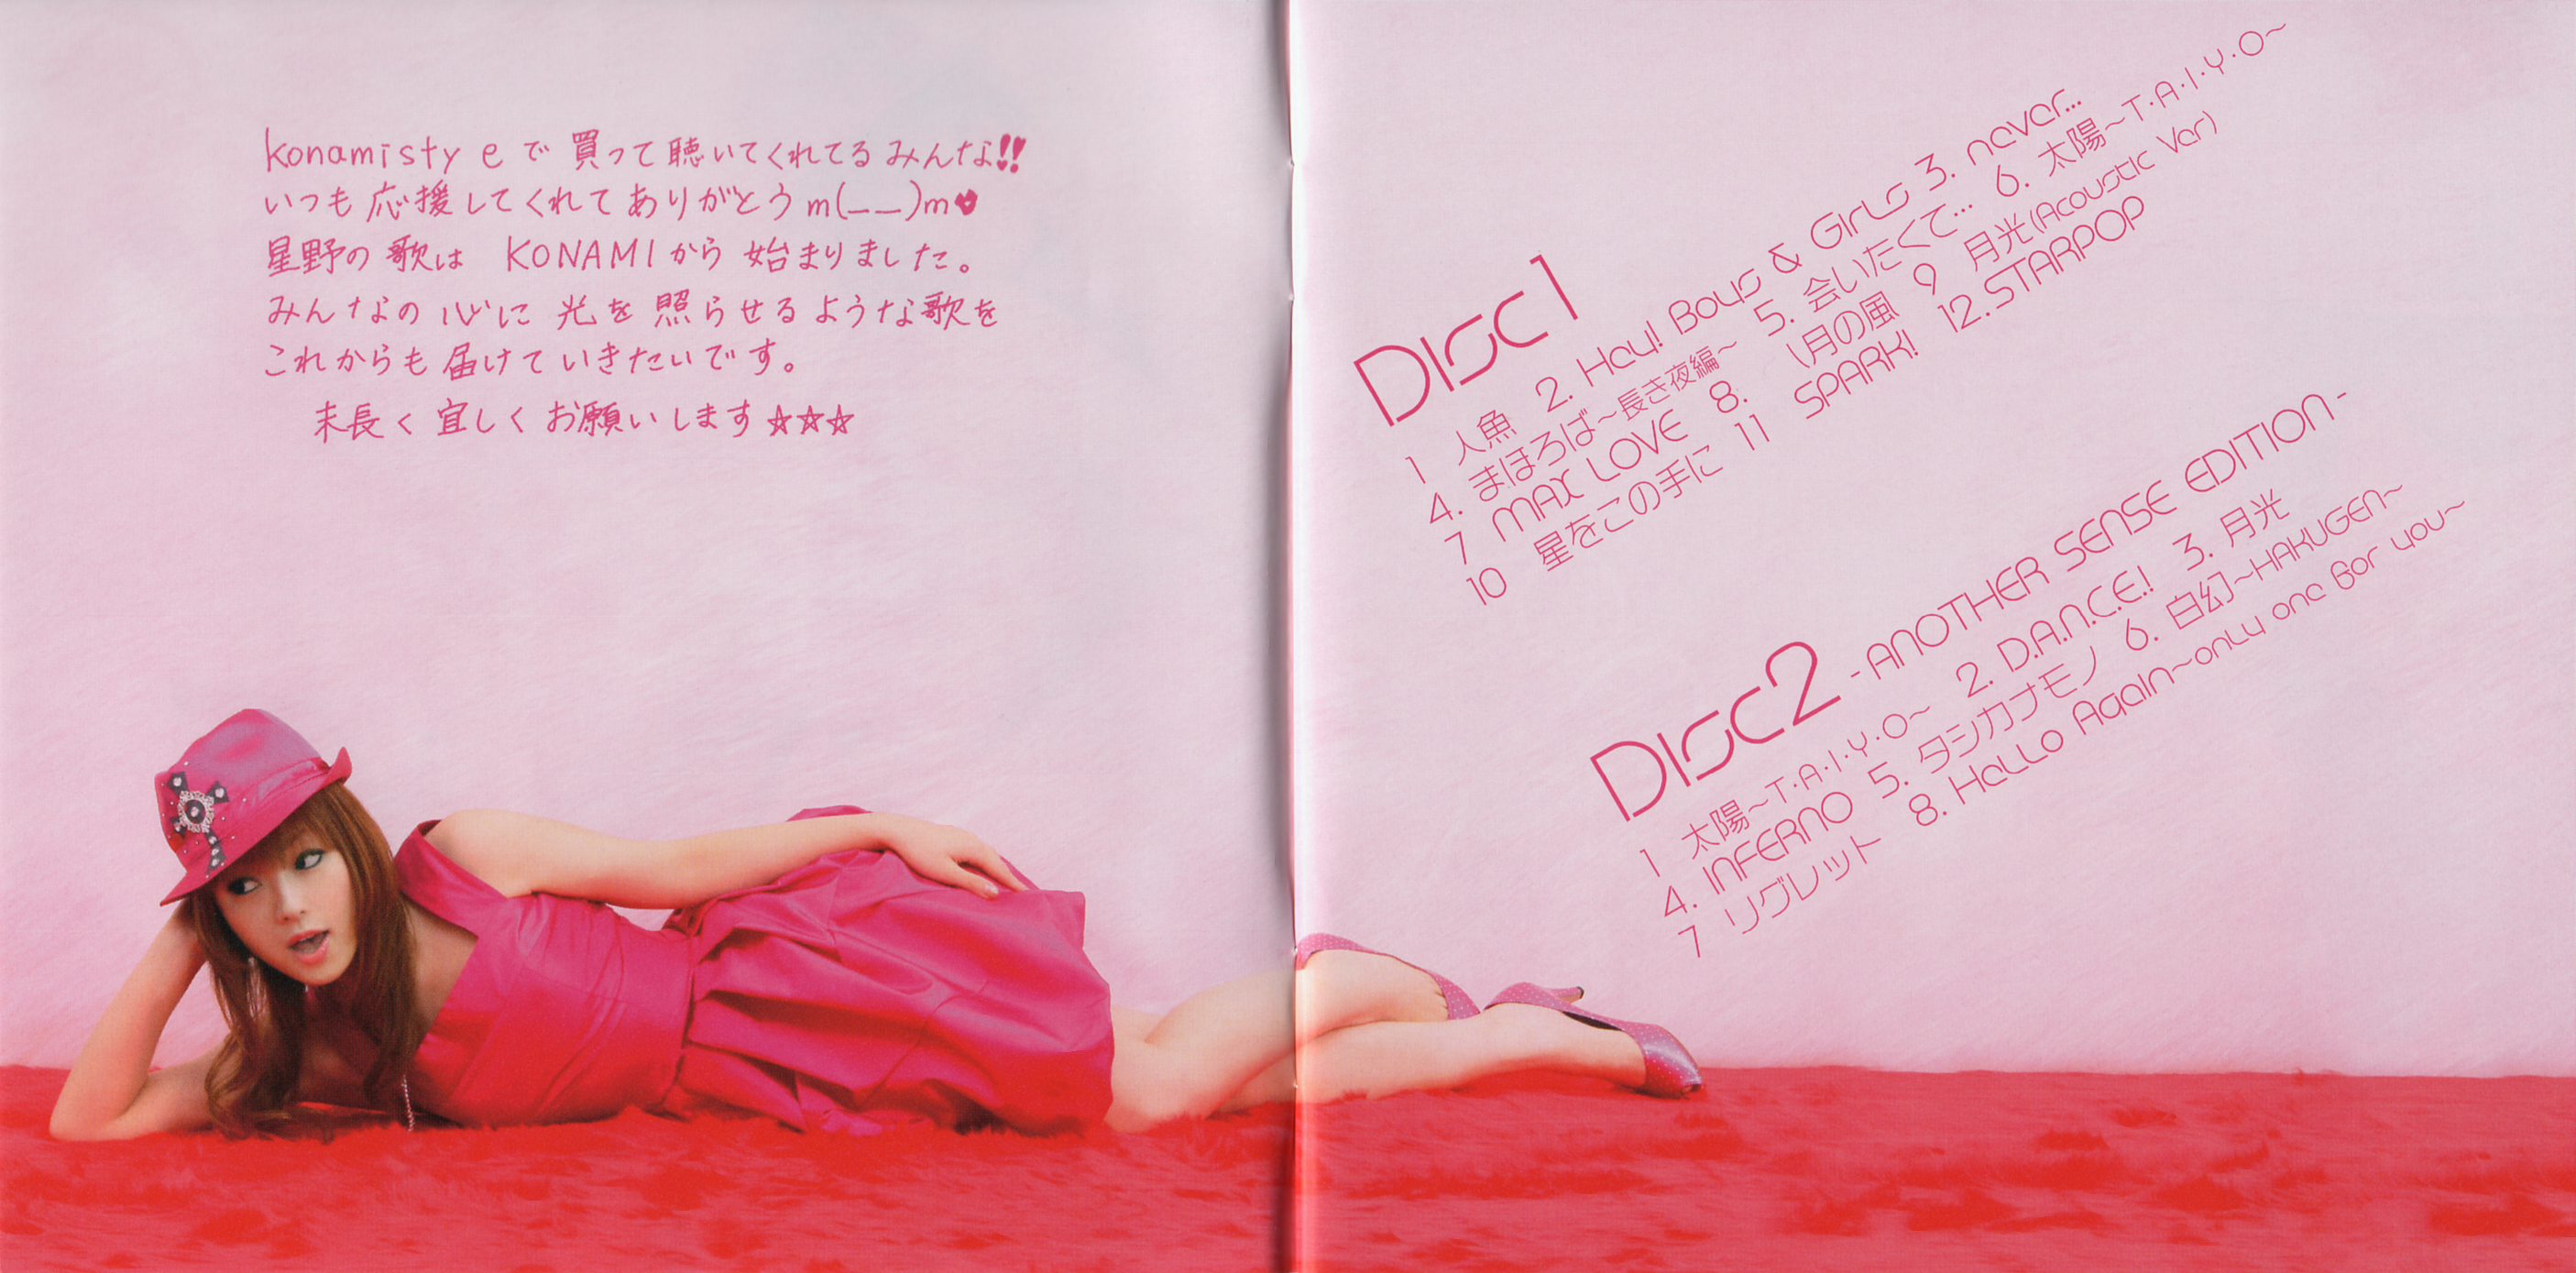 konamisty eで 買って聴いてくれてるみんな!!
いつも応援してくれてありがとうm(__)m
星野の歌は KONAMIから始まりました。
みんなの心に光を照らせるような歌を
これからも届けていきたいです。
末長く宜しくお願いします☆☆☆
Disc1
1 人魚 2. Hey! Boys & Girls 3. never...
4. まほろば~長き夜編~ 5. 会いたくて... 6. 太陽~T・A・I・Y・O~
7 MAX LOVE 8. \月の風 9 月光(Acoustic Ver)
10 星をこの手に 11 SPARK! 12.STARPOP
Disc2 - ANOTHER SENSE EDITION -
1 太陽~T・A・I・Y・O~ 2. D.A.N.C.E.! 3. 月光
4. INFERNO 5. タシカナモノ 6. 白幻~HAKUGEN~
7 リグレット 8. Hello Again~only one for you~